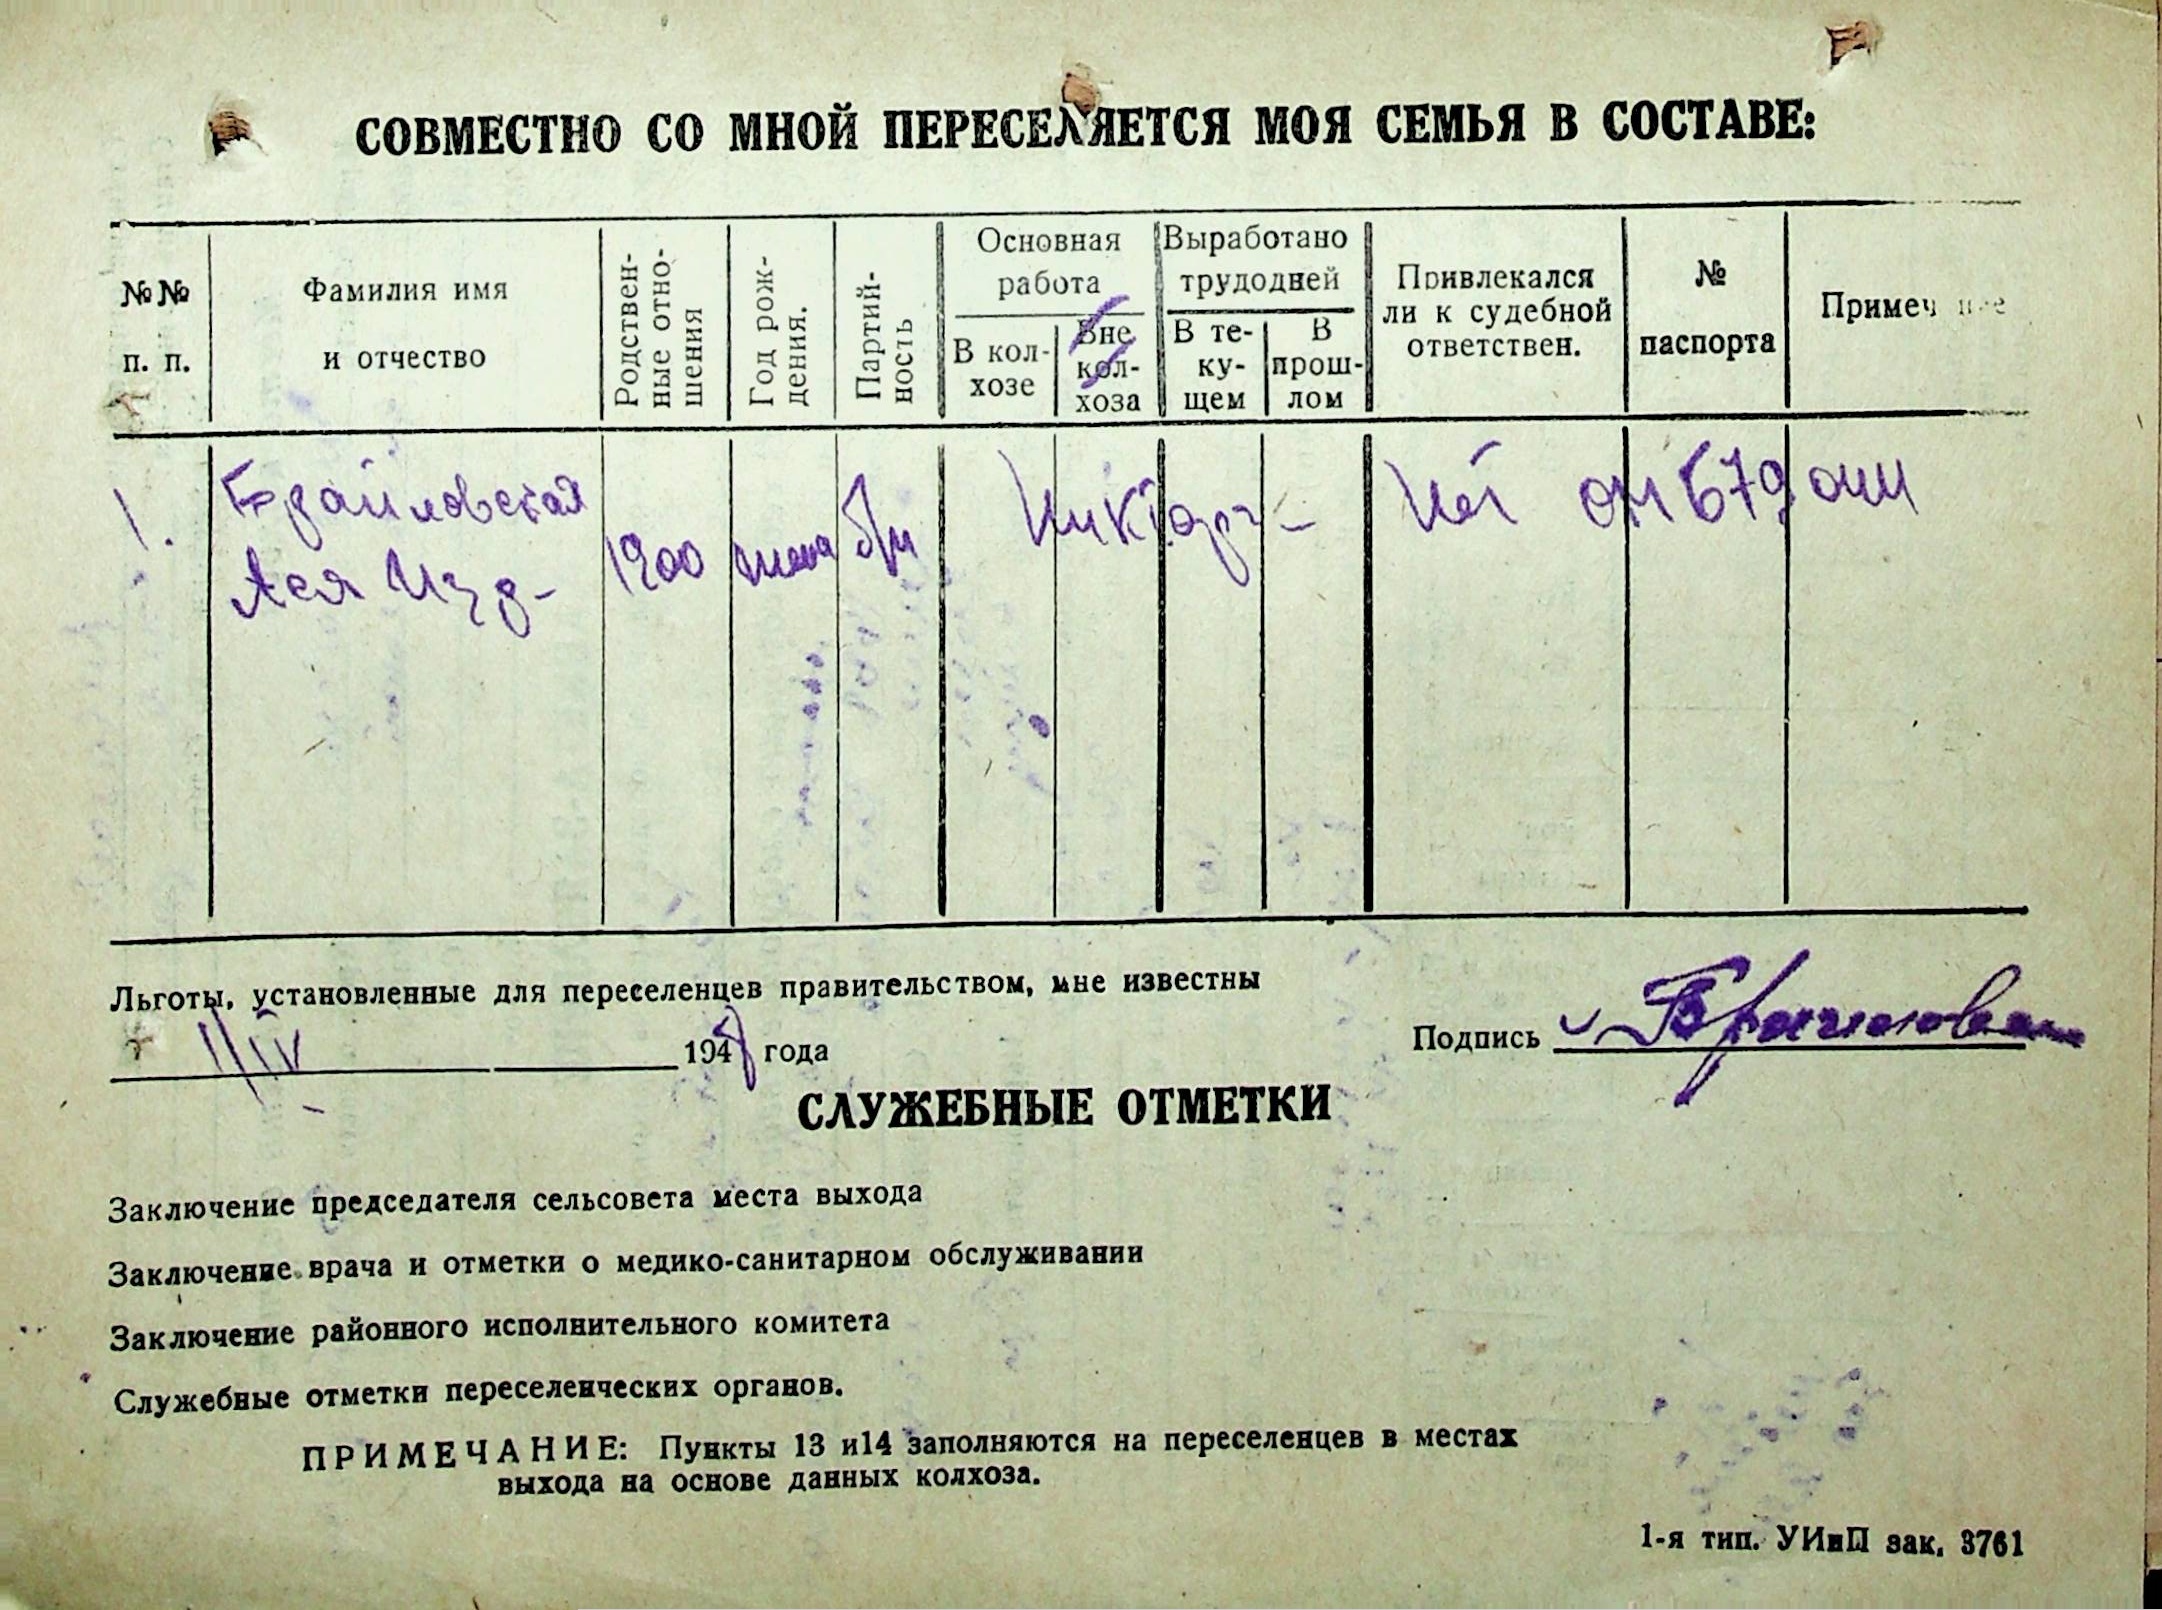 СОВМЕСТНО СО МНОЙ ПЕРЕСЕЛЯЕТСЯ МОЯ СЕМЬЯ В СОСТАВЕ:
№№ п. п.
Фамилия имя и отчество
Родствен- ные отно- шения
Год рож- дения.
Партий- ность
Основная работа
В кол- хозе
Вне кол- хоза
Выработано трудодней
В те- ку- щем
В прош- лом
Привлекался ли к судебной ответствен.
№ паспорта
Примеч
1.
Брайловская
Ася Изр-
1900
жена
б/п
Нет
Льготы, установленные для переселенцев правительством, мне известны
11/IV 1948 года
Подпись
СЛУЖЕБНЫЕ ОТМЕТКИ
Заключение председателя сельсовета места выхода
Заключение врача и отметки о медико-санитарном обслуживании
Заключение районного исполнительного комитета
Служебные отметки переселенческих органов.
ПРИМЕЧАНИЕ: Пункты 13 и14 заполняются на переселенцев в местах
выхода на основе данных колхоза.
1-я тип. УИиП зак. 3761